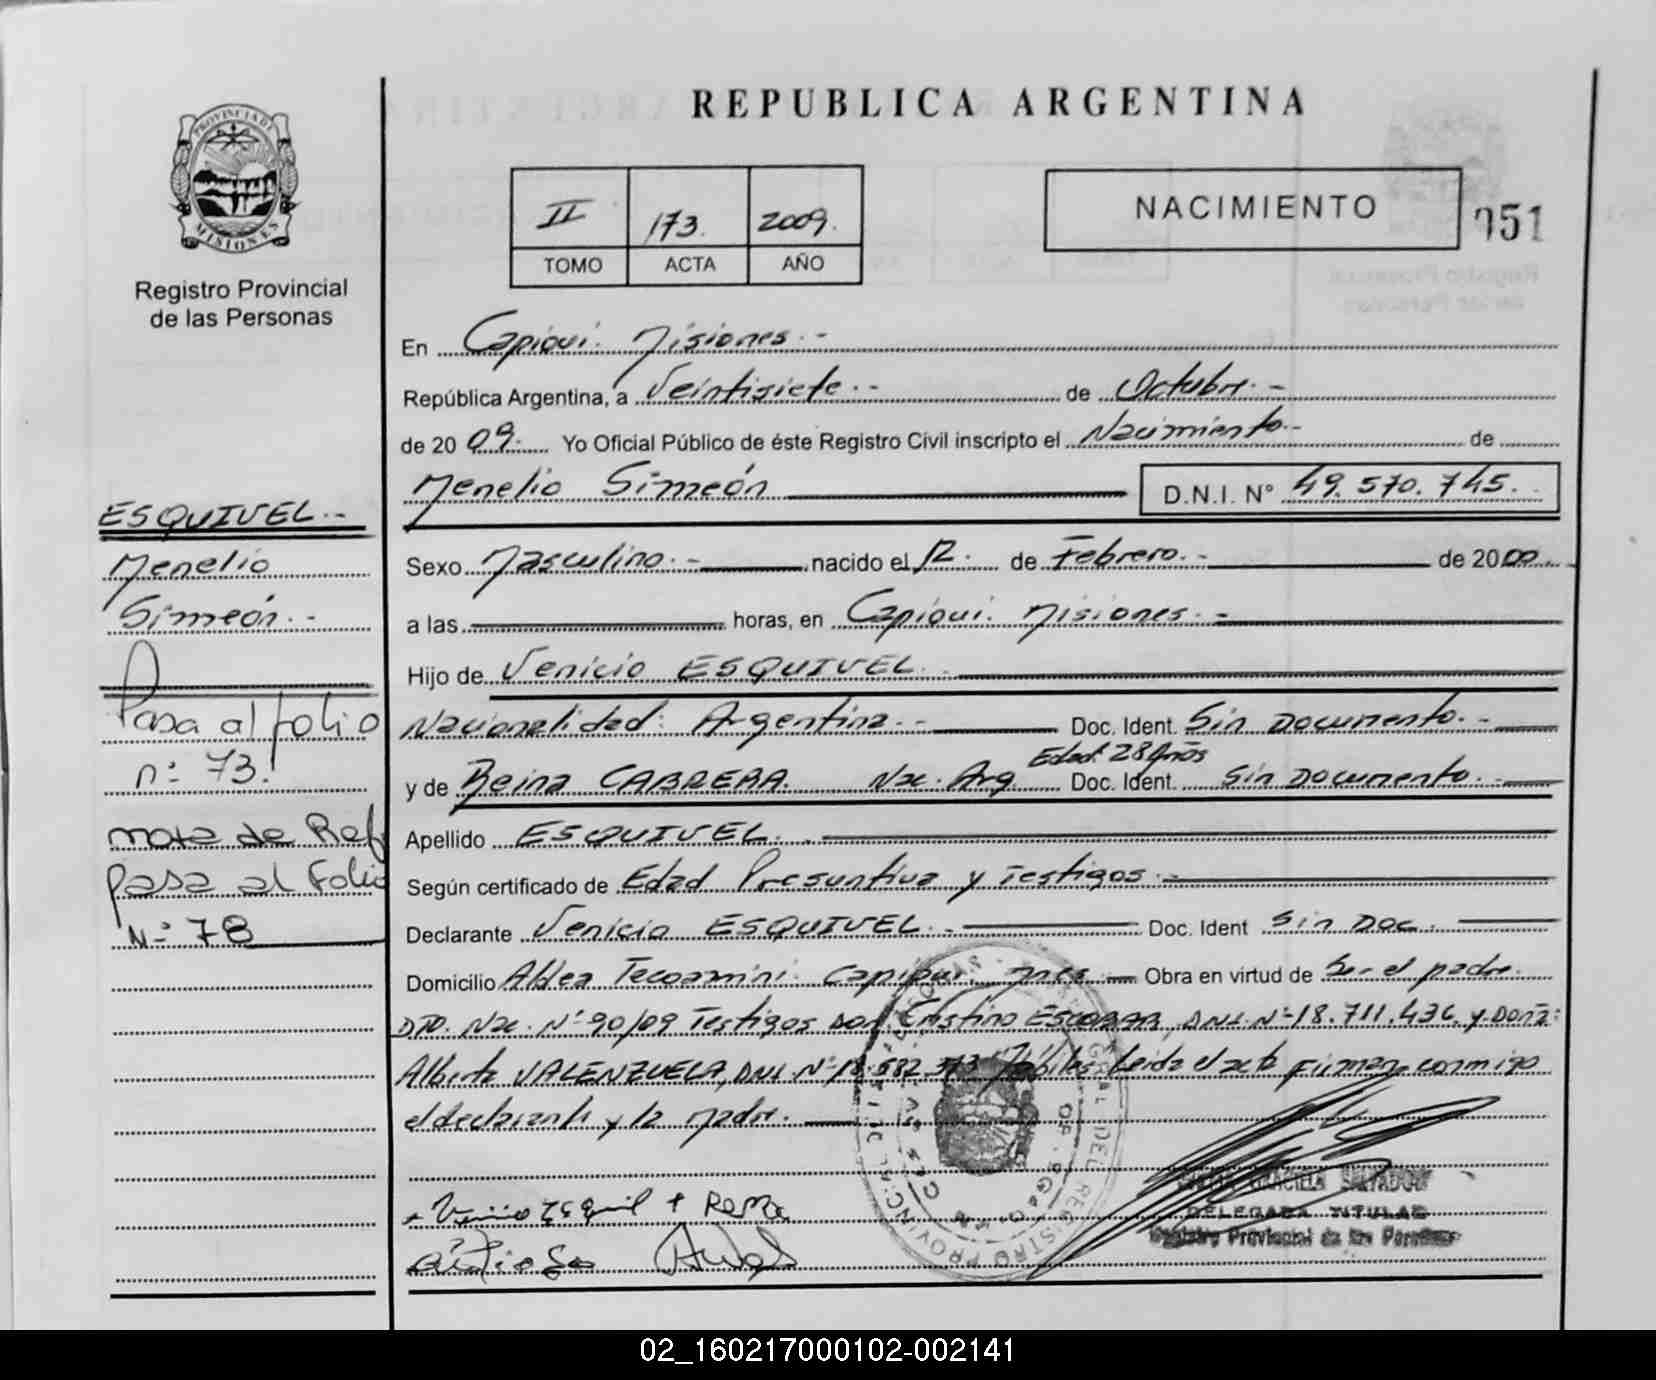 REPUBLICA ARGENTINA
PROVINCIA DE
MISIONES
Registro Provincial
de las Personas
II 173. 2009.
TOMO ACTA AÑO
NACIMIENTO
051
En Capioví. Misiones.-
República Argentina, a Veintisiete.- de Octubre.-
de 2009. Yo Oficial Público de éste Registro Civil inscripto el Nacimiento.- de
Menelio Simeón D.N.I. N° 49.570.745.
Sexo Masculino.- nacido el 12. de Febrero.- de 2000.
a las horas, en Capioví. Misiones.-
Hijo de Venicio ESQUIVEL.
Nacionalidad: Argentina.- Doc. Ident. Sin Documento.-
Edad: 28 Años
y de Reina CABRERA. Nac. Arg. Doc. Ident. Sin Documento.-
Apellido ESQUIVEL.
Según certificado de Edad Presuntiva y Testigos.-
Declarante Venicio ESQUIVEL.- Doc. Ident Sin Doc.
Domicilio Aldea Tecoamini. Capioví. Mnes.- Obra en virtud de Ser el padre.
DTO. Nac. N° 90/09 Testigos DON Cristino ESCOBAR, DNI. N° 18.711.436. y DOÑA:
Alberta VALENZUELA, DNI. N° 18.582.373 Hábiles. Leida el acta firman conmigo
el declarante y la Madre.
GRACIELA SALVADOR
DELEGADA TITULAR
Registro Provincial de las Personas
ESQUIVEL.-
Menelio
Simeón.-
Pasa al folio
n° 73.
nota de Ref
pasa al Folio
N° 78
02_160217000102-002141